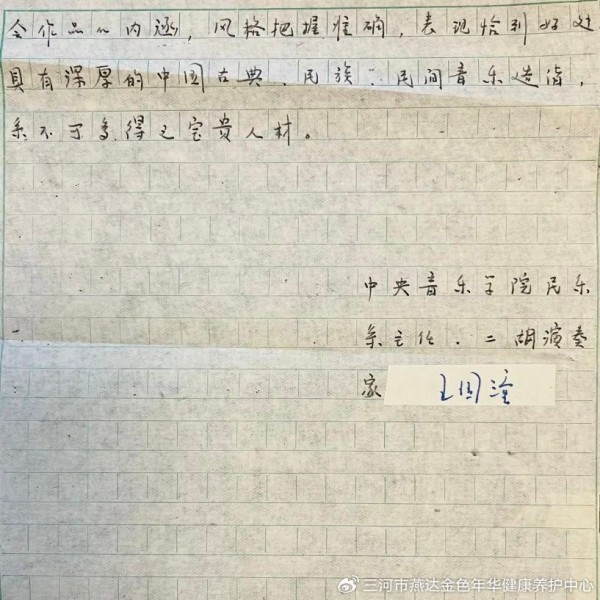 会作品的内涵，风格把握准确，表现恰到好处
具有深厚的中国古典、民族、民间音乐造诣，
系不可多得之宝贵人材。
中央音乐学院民乐
系主任、二胡演奏
家 王国潼
三河市燕达金色年华健康养护中心